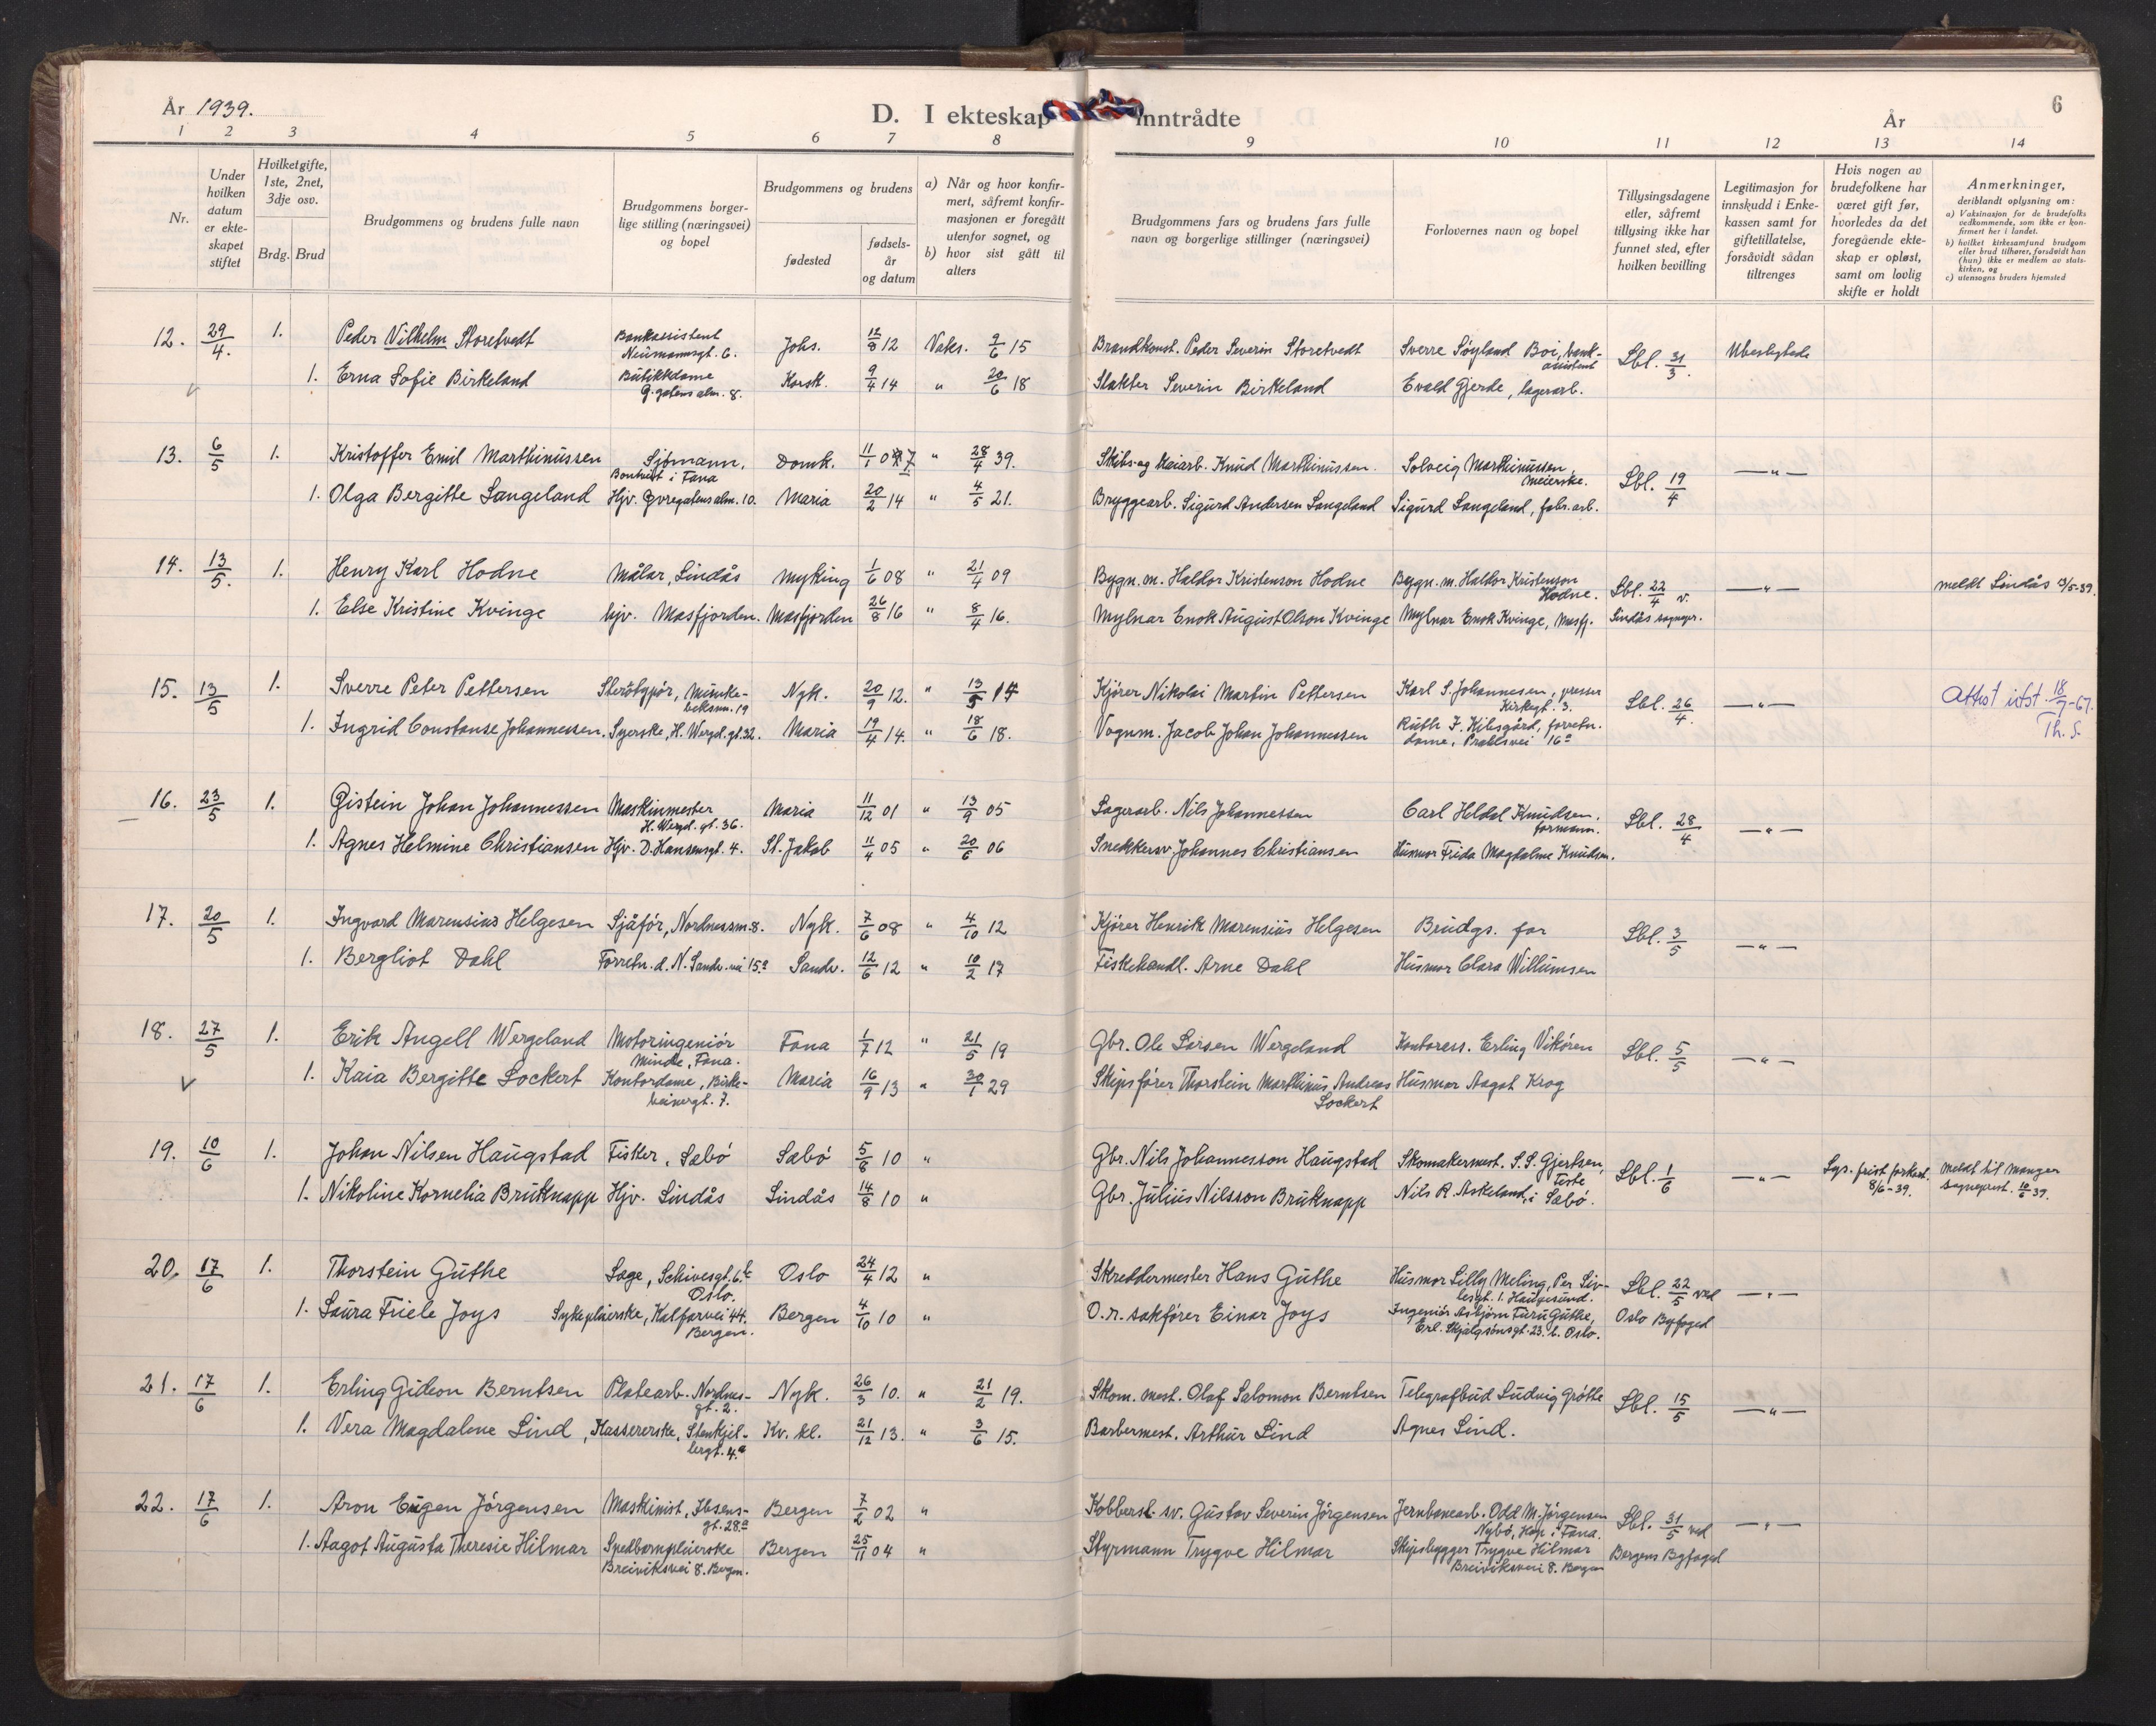 År 1939.
D. I ekteskap inntrådte
År
6
1 2 3 4 5 6 7 8 9 10 11 12 13 14
Nr.
Under hvilken datum er ekteskapet stiftet
Hvilket gifte, 1ste, 2net, 3dje osv.
Brdg. Brud
Brudgommens og brudens fulle navn
Brudgommens borgerlige stilling (næringsvei) og bopel
Brudgommens og brudens
fødested
fødselsår og datum
a) Når og hvor konfirmert, såfremt konfirmasjonen er foregått utenfor sognet, og
b) hvor sist gått til alters
Brudgommens fars og brudens fars fulle navn og borgerlige stillinger (næringsvei)
Forlovernes navn og bopel
Tillysingsdagene eller, såfremt tillysing ikke har funnet sted, efter hvilken bevilling
Legitimasjon for innskudd i Enkekassen samt for giftetillatelse, forsåvidt sådan tiltrenges
Hvis nogen av brudefolkene har været gift før, hvorledes da det foregående ekteskap er opløst, samt om lovlig skifte er holdt
Anmerkninger, deriblandt oplysning om:
a) Vaksinasjon for de brudefolks vedkommende, som ikke er konfirmert her i landet.
b) hvilket kirkesamfund brudgom eller brud tilhører, forsåvidt han (hun) ikke er medlem av statskirken, og
c) utensogns bruders hjemsted
12. 29/4. 1. Peder Vilhelm Storetvedt Bankassistent Neumannsgt. 6. Johs. 12/8 12 Vaks. 9/6 15 Brandkonst. Peder Severin Storetvedt Sverre Søyland Boi, bankassistent Lbl. 31/3. Ubeslegtede
1. Erna Sofie Birkeland Butikkdame Ø.gatens alm. 8. Korsk. 9/4 14 " 20/6 18 Slakter Severin Birkeland Evald Gjerde, lagerarb.
13. 6/5 1. Kristoffer Emil Marthinussen Sjømann, Bontveit i Fana Domk. 11/1 07 7 " 28/4 39. Skibs-og kaiarb. Knud Marthinussen. Solveig Marthinussen, meierske. Lbl. 19/4 —"—
1. Olga Bergitte Langeland Hjv. Øvregatens alm. 10. Maria 20/2 14 " 4/5 21. Bryggearb. Sigurd Andersen Langeland Sigurd Langeland, fabr. arb.
14. 13/5. 1. Henry Karl Hodne Målar, Lindås Myking 1/6 08 " 21/4 09 Bygn. m. Haldor Kristenson Hodne Bygn. m. Haldor Kristenson Hodne. Lbl. 22/4 v. —"— meldt Lindås 13/5-39.
1. Else Kristine Kvinge hjv. Masfjorden. Masfjorden 26/8 16 " 8/4 16. Mylnar Enok August Olson Kvinge Mylnar Enok Kvinge, Masfj. Lindås sognepr.
15. 13/5 1. Sverre Peter Pettersen Sterotypör, Munkebeksm. 19 Nyk. 20/9 12. " 13/5 14 Kjörer Nikolai Martin Pettersen Karl S. Johannesen, presser Kirkegt. 3. Lbl. 26/4. —"— Attest utst. 18/7-67. Th. S.
1. Ingrid Constanse Johannessen. Syerske, H. Wergel. gt. 32. Maria 19/4 14. " 18/6 18. Vognm. Jacob Johan Johannessen Ruth F. Hilsgård, forretn. dame, Prahlsvei 16a
16. 23/5 1. Øistein Johan Johannessen Maskinmester H. Wergel. gt. 36. Maria 11/12 01 " 13/9 05 Lagerarb. Nils Johannessen Carl Heldal Knudsen, formann. Lbl. 28/4 —"—
1. Agnes Helmine Christiansen Hjv. D. Hansensgt. 4. St. Jakob 11/4 05 " 20/6 06 Snekkersv. Johannes Christiansen Husmor Frida Magdalene Knudsen.
17. 20/5 1. Ingvard Marensius Helgesen Sjåfór, Nordnessm. 8. Nyk. 7/6 08 " 4/10 12 Kjörer Henrik Marensius Helgesen Brudgs. far Lbl. 3/5 —"—
1. Bergliot Dahl Forretn. d. N. Sandv. vei 15a Sandv. 12/6 12 " 10/2 17 Fiskehandl. Arne Dahl Husmor Clara Willumsen
18. 27/5 1. Erik Angell Wergeland Motoringeniör Minde, Fana. Fana 1/7 12 " 21/5 19 Gbr. Ole Larsen Wergeland Kontorass. Erling Vikören Lbl. 5/5 —"—
1. Kaia Bergitte Lockert Kontordame, Birkebeinergt. 7. Maria 16/9 13 " 30/1 29 Skipsfører Thorstein Marthinus Andreas Lockert Husmor Aagot Krog
19. 10/6 1. Johan Nilsen Haugstad Fisker, Sæbö Sæbö 5/6 10 " Gbr. Nils Johannesson Haugstad Skomakermest. S. S. Gjertsen, Teste Lbl. 1/6 —"— Lys. frist forkort. 8/6-39. Meldt til Manger sogneprest. 10/6 39.
1. Nikoline Kornelia Bruknapp Hjv. Lindås Lindås 14/8 10 " Gbr. Julius Nilsson Bruknapp Nils R. Askeland, i Sæbö.
20. 17/6 1. Thorstein Guthe Lage, Schivesgt. 6.b Oslo. Oslo 24/4 12 " Skreddermester Hans Guthe Husmor Lilly Meling, Per Sivlesgt. 1. Haugesund. Lbl. 22/5 ved —"—
1. Laura Friele Joys Sykepleierske, Kalfarvei 44. Bergen. Bergen 4/10 10 " O.r. sakfører Einar Joys Ingeniör Asbjørn Furu Guthe, Erl. Skjalgsønsgt. 23. b. Oslo. Oslo Byfoged
21. 17/6 1. Erling Gideon Berntsen Platearb. Nordnesgt. 2. Nyk. 26/3 10. " 21/2 19. Skom. mest. Olaf Salomon Berntsen Telegrafbud Ludvig Grötte Lbl. 15/5 —"—
1. Vera Magdalene Lind, Kassererske, Stenkjellergt. 4.a Kv. kl. 21/12 13. " 3/6 15. Barbermest. Arthur Lind Agnes Lind.
22. 17/6 1. Aron Eugen Jörgensen Maskinist, Ibsensgt. 28a Bergen 7/2 02 " Kobbersl. sv. Gustav Severin Jörgensen Jernbanearb. Odd M. Jörgensen Nybö, Hop i Fana. Lbl. 31/5 ved —"—
1. Aagot Augusta Theresie Hilmar Spedbarnpleierske Breiviksvei 8. Bergen. Bergen 25/11 04 " Styrmann Trygve Hilmar Skipsbygger Trygve Hilmar Breiviksvei 8. Bergen Bergens Byfoged